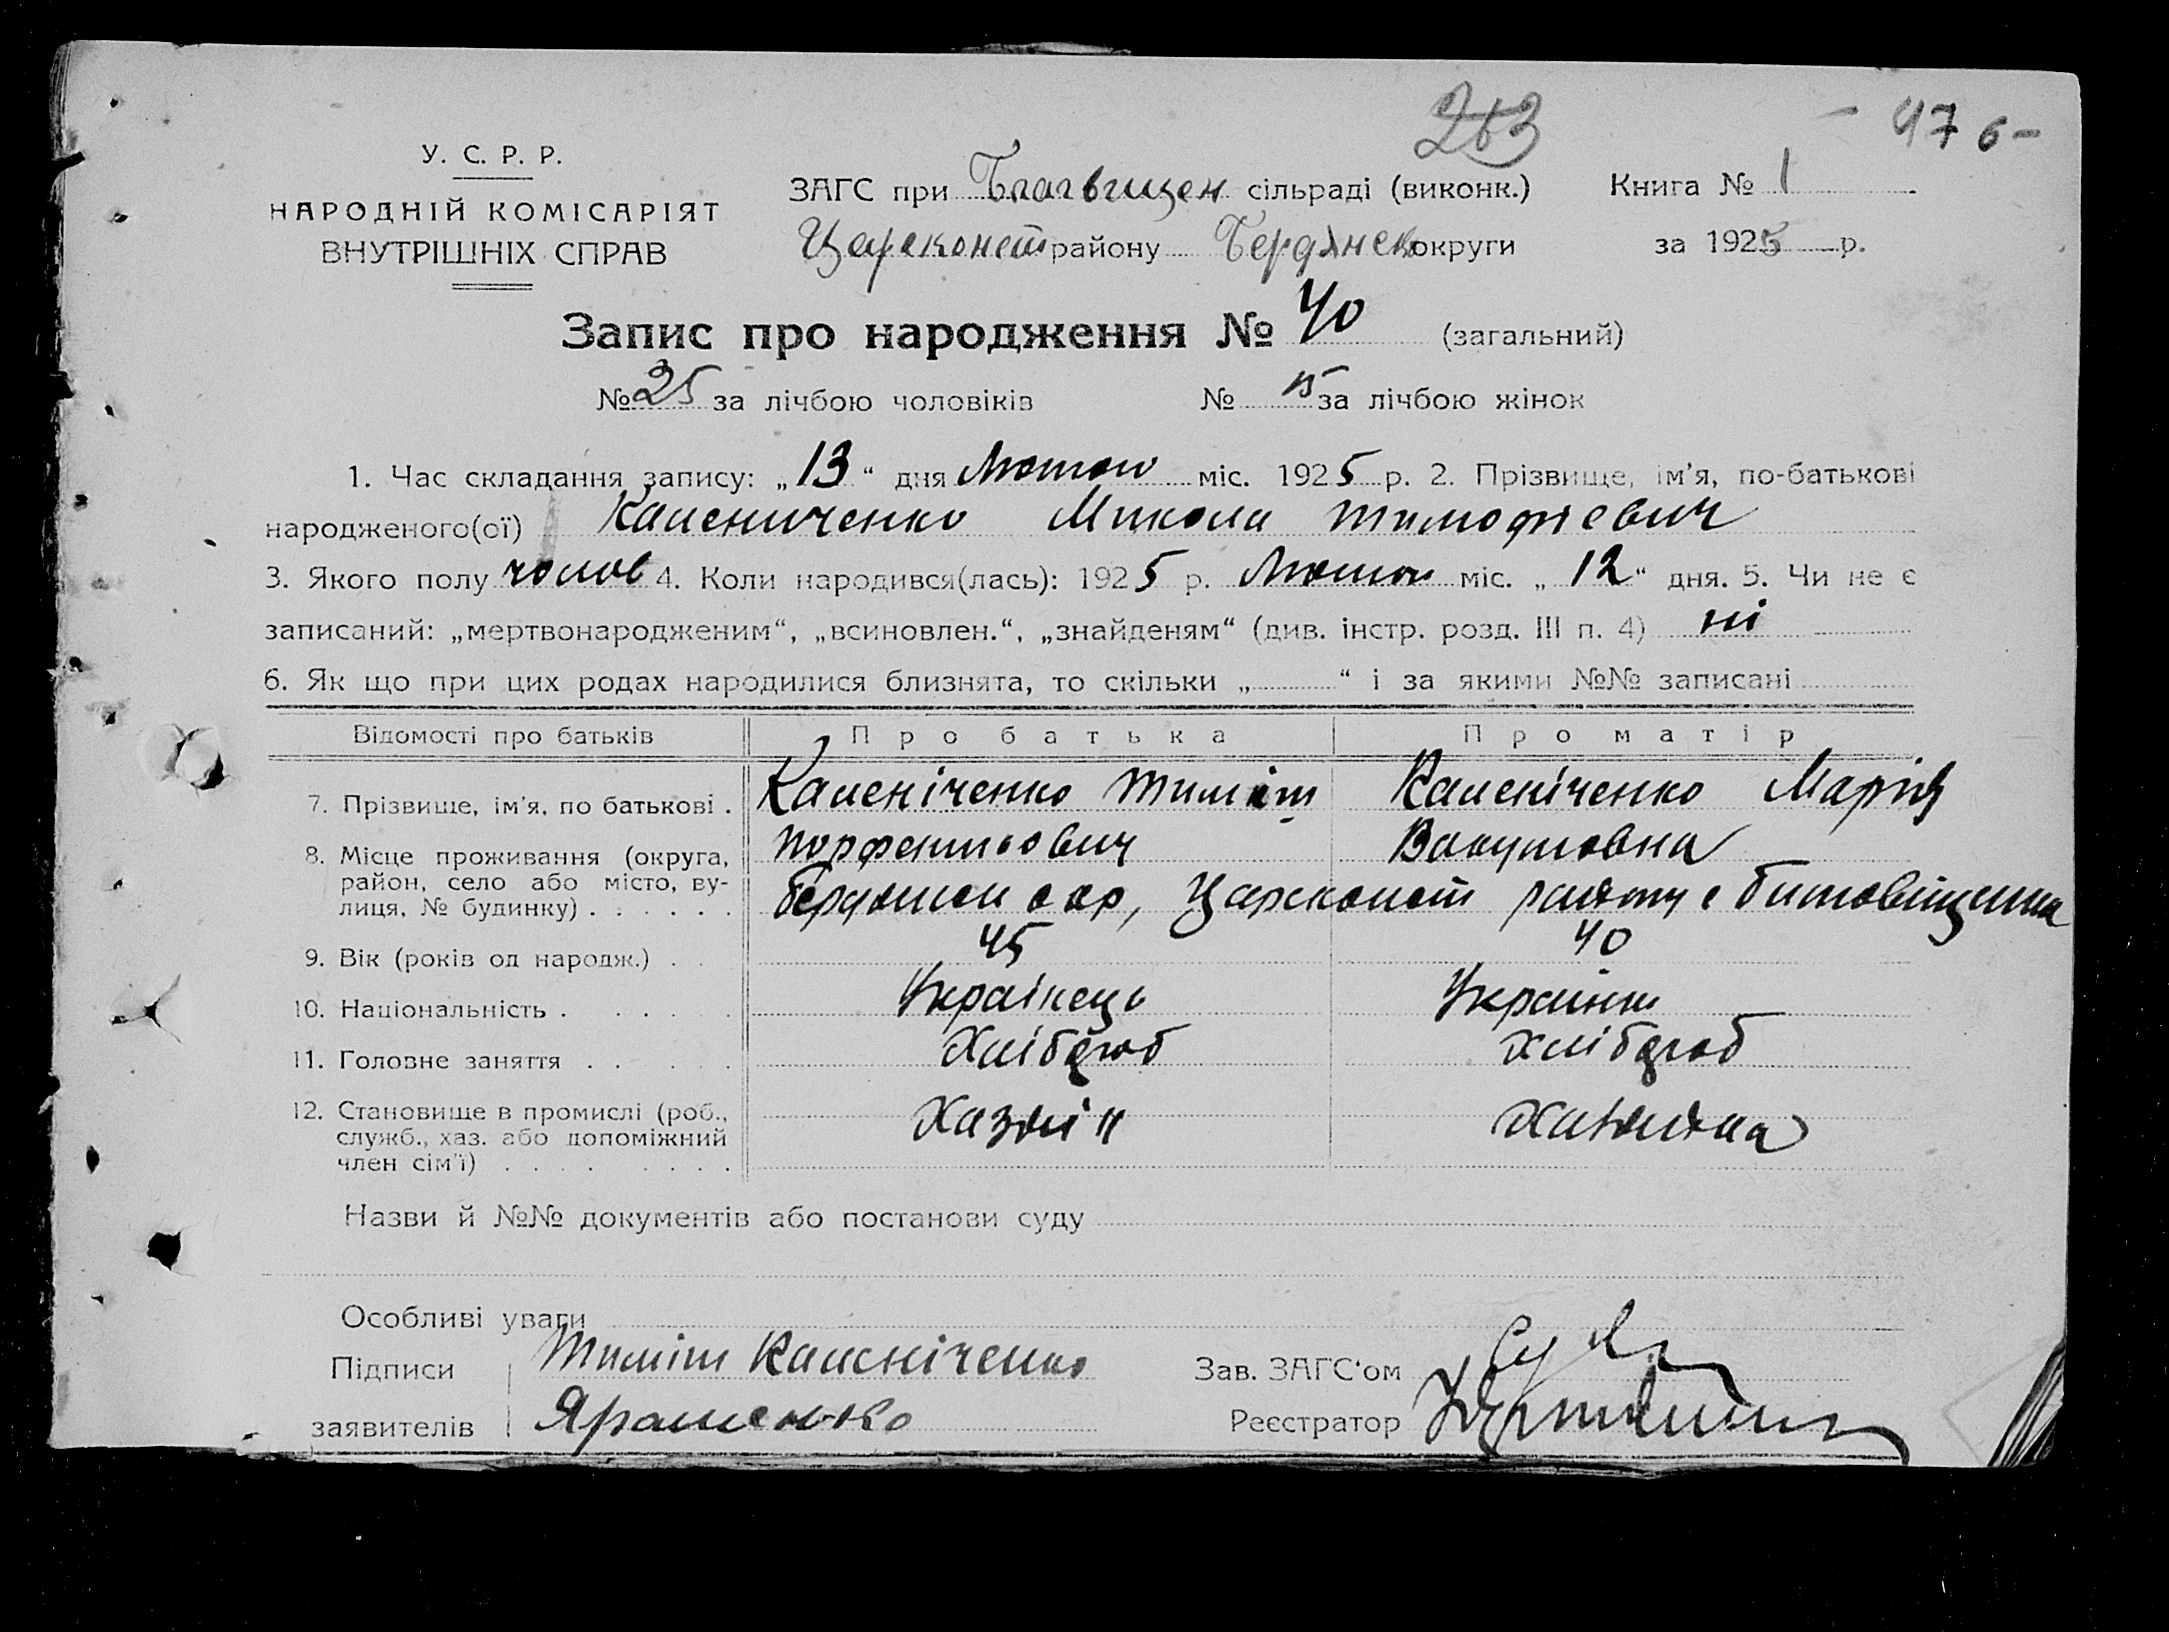 263 - 47 б -
У. С. Р. Р.
НАРОДНІЙ КОМІСАРІЯТ
ВНУТРІШНІХ СПРАВ
ЗАГС при Благовищен сільраді (виконк.) Книга № 1
Цареконст району Бердянськ округи за 1925 р.
Запис про народження № 40 (загальний)
№ 25 за лічбою чоловіків № 15 за лічбою жінок
1. Час складання запису: „13“ дня Лютого міс. 1925 р. 2. Прізвище, ім’я, по-батькові
народженого(ої) Камениченко Микола Тимофіевич
3. Якого полу чолов 4. Коли народився(лась): 1925 р. Лютого міс. „12“ дня. 5. Чи не є
записаний: „мертвонародженим“, „всиновлен.“, „знайденям“ (див. інстр. розд. III п. 4) ні
6. Як що при цих родах народилися близнята, то скільки „ “ і за якими №№ записані
Відомості про батьків Про батька Про матір
7. Прізвище, ім’я, по батькові . Каменіченко Тиміш Каменіченко Марія
Порфентьович
8. Місце проживання (округа,
район, село або місто, ву-
лиця, № будинку) . . . . . . Бердянськ окр, Царсконст району с
9. Вік (років од народж.) . . 45 40
10. Національність . . . . . . Українець Українка
11. Головне заняття . . . . . Хліброб хлібороб
12. Становище в промислі (роб.,
служб., хаз. або допоміжний
член сім’ї) . . . . . . . . Хазяїн Хазяйка
Назви й №№ документів або постанови суду
Особливі уваги
Підписи Тиміш Каменіченко Зав. ЗАГС‘ом
заявителів Ярошенко Реєстратор